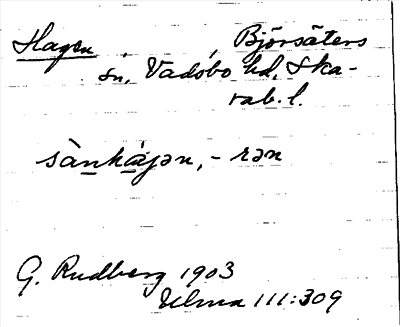 Hagen Björsäters
sn, Vadsbo hd, Ska-
rab. l.
sànhájən, -rən
G. Rudberg 1903
Ulma 111:309